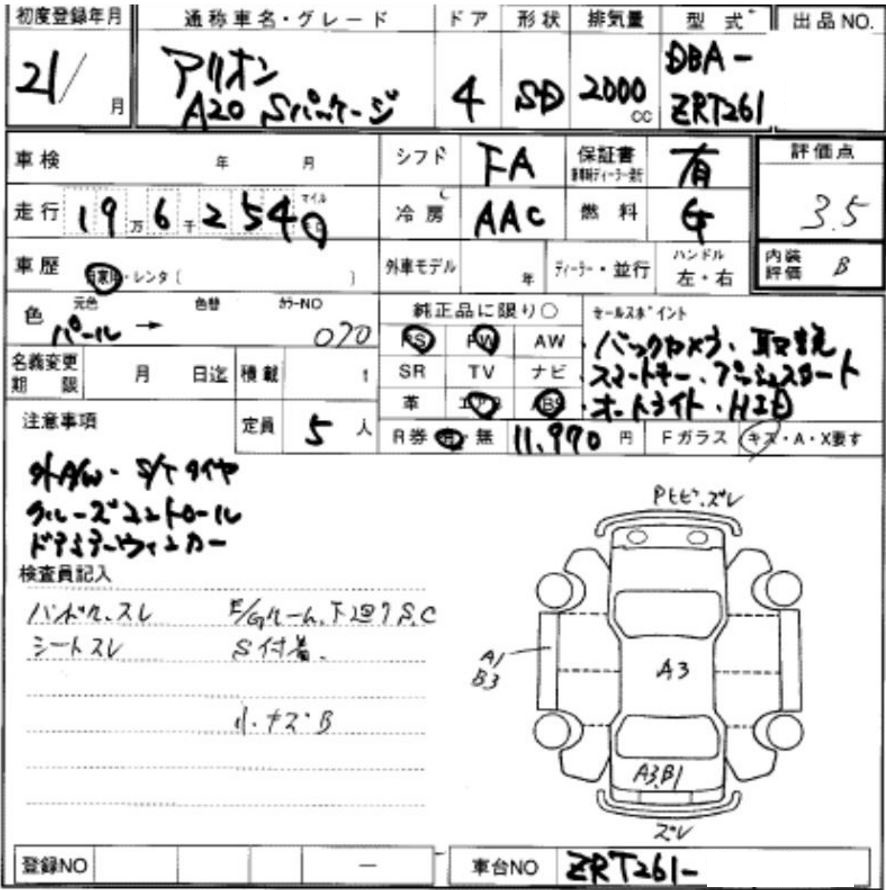 初度登録年月 通称車名・グレード ドア 形状 排気量 型式 出品NO.
21/ 月 アリオン A20 Sパッケージ 4 SD 2000 cc DBA-ZRT261
車検 年 月 シフト FA 保証書 有 評価点
走行 19万6千254 マイル 冷房 AAC 燃料 G 3.5
車歴 自家用・レンタ( ) 外車モデル 年 ディーラー・並行 ハンドル 左・右 内装評価 B
色 元色 色替 カラーNO 純正品に限り○ セールスポイント
パール → 070 PS PW AW ・バックカメラ、取説
名義変更期限 月 日迄 積載 t SR TV ナビ ・スマートキー・プッシュスタート
革 エアB ABS ・オートライト・HID
注意事項 定員 5 人 R券 無 11,970 円 Fガラス キズ・A・X要す
外A/W・S/Tタイヤ
クルーズコントロール
ドアミラーウィンカー
検査員記入
ハンドル、スレ E/Gルーム、下廻りS,C
シートスレ S付着、
小・キズB
Pヒビ、ズレ
A1
B3
A3
A3,B1
ズレ
登録NO — 車台NO ZRT261-